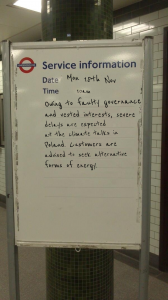 Service information
Date Mon 18th Nov
Time 10am
Owing to faulty governance
and vested interests, severe
delays are expected
at the climate talks in
Poland. Customers are
advised to seek alternative
forms of energy.